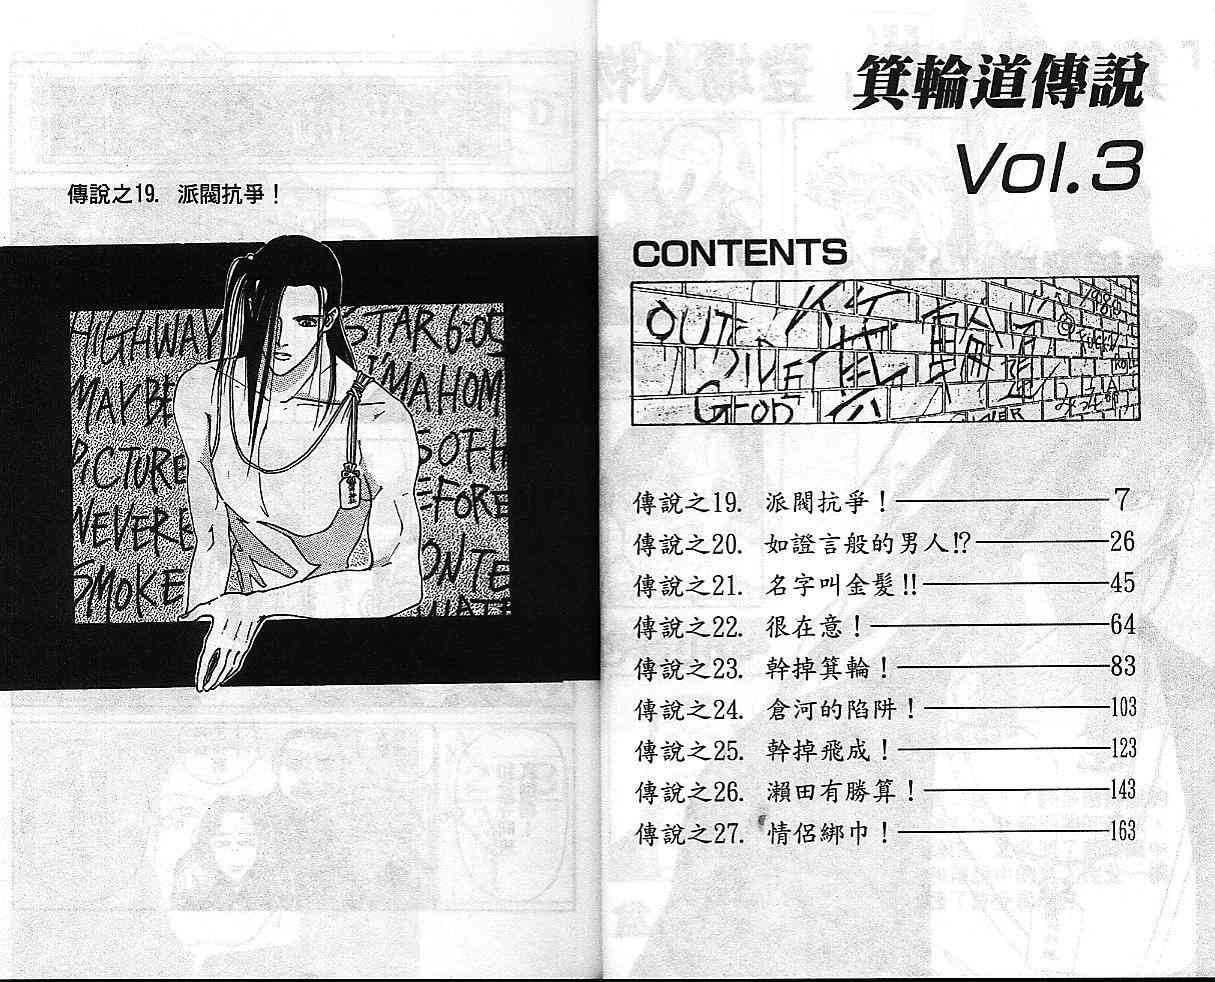 箕輪道傳說
Vol.3
CONTENTS
OUT
SIDE
箕輪道
傳說之19. 派閥抗爭！ 7
傳說之20. 如證言般的男人!? 26
傳說之21. 名字叫金髮!! 45
傳說之22. 很在意！ 64
傳說之23. 幹掉箕輪！ 83
傳說之24. 倉河的陷阱！ 103
傳說之25. 幹掉飛成！ 123
傳說之26. 瀨田有勝算！ 143
傳說之27. 情侶綁巾！ 163
傳說之19. 派閥抗爭！
HIGHWAY STAR 6:05
MAYBE I'M A HOM
PICTURE SOFH
NEVERE EFORE
SMOKE ONTE